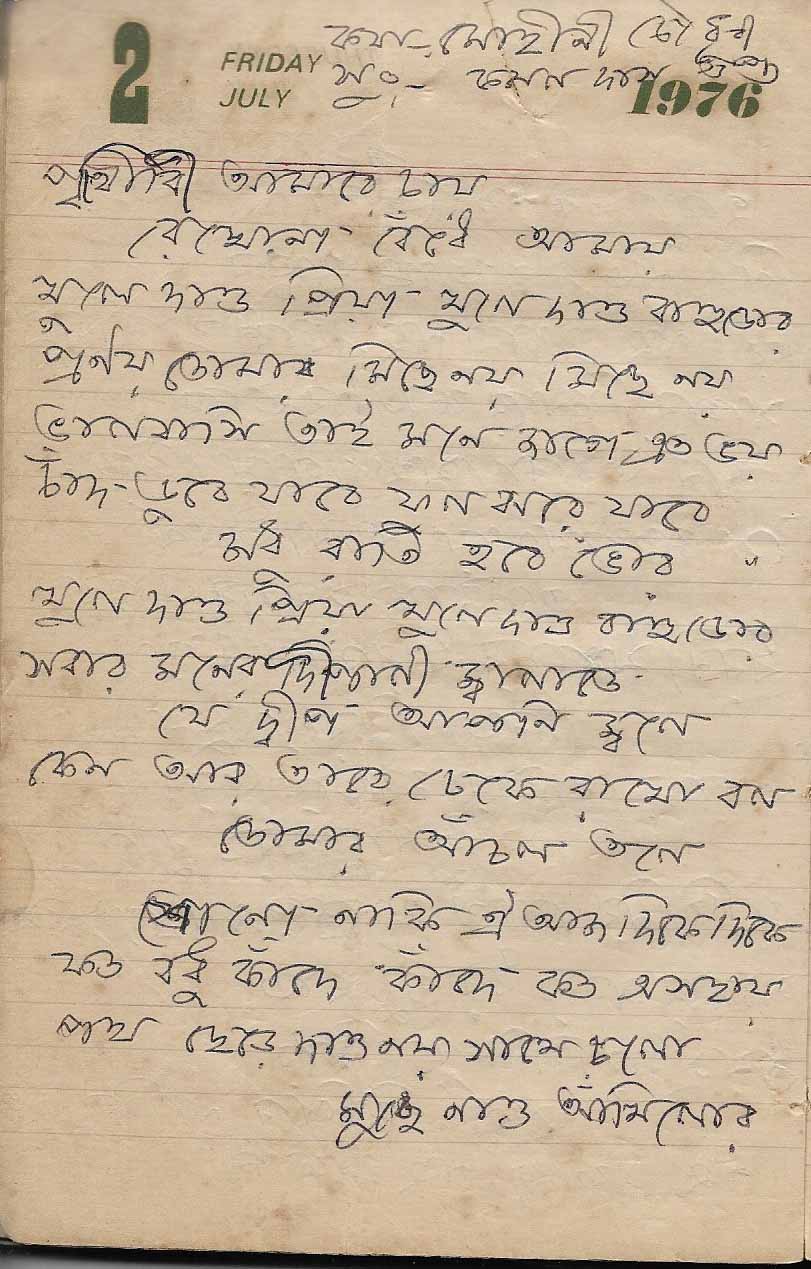 2
FRIDAY
JULY
1976
কথা- মোহীনী চৌধুরী
সুর- কমল দাস গুপ্ত
পৃথিবী আমারে চায়
রেখোনা বেঁধে আমায়
খুলে দাও প্রিয়া খুলে দাও বাহুডোর
প্রণয় তোমার মিছে নয় মিছে নয়
ভালবাসি তাই মনে জাগে এত ভয়
চাঁদ ডুবে যাবে ফুল ঝরে যাবে
মধু রাতি হবে ভোর "
খুলে দাও প্রিয়া খুলে দাও বাহুডোর
সবার মনের দিপালী জ্বালাতে
যে দ্বীপ আপনি জ্বলে
কেন আর তারে ঢেকে রাখো বল
তোমার আঁচল তলে
শোনো নাকি ঐ আজ দিকে দিকে
কত বধু কাঁদে কাঁদে কত অসহায়
পথ ছেড়ে দাও নয় সাথে চলো
মুছে নাও আঁখিলোর